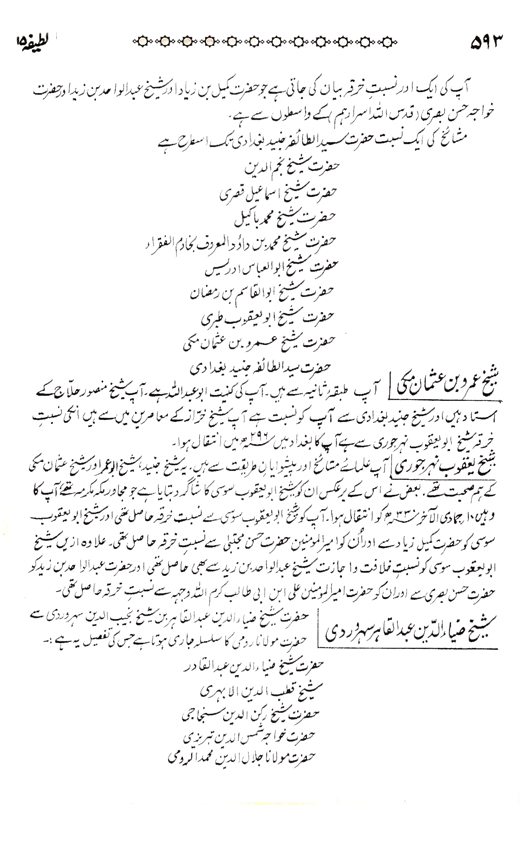 ۵۹۳
لطیفہ ۱۵
آپ کی ایک اور نسبتِ خرقہ بیان کی جاتی ہے جو حضرت کمیل بن زیاد اور شیخ عبدالواحد بن زید اور حضرت
خواجہ حسن بصری (قدس اللہ اسرارہم) کے واسطوں سے ہے۔
مشائخ کی ایک نسبت حضرت سید الطائفہ جنید بغدادی تک اسطرح ہے
حضرت شیخ نجم الدین
حضرت شیخ اسماعیل قصری
حضرت شیخ محمد باکیل
حضرت شیخ محمد بن داؤد المعروف بخادم الفقراء
حضرت شیخ ابوالعباس ادریس
حضرت شیخ ابوالقاسم بن رمضان
حضرت شیخ ابویعقوب طبری
حضرت شیخ عمرو بن عثمان مکی
حضرت سید الطائفہ جنید بغدادی
شیخ عمرو بن عثمان مکی آپ طبقۂ ثانیہ سے ہیں۔ آپ کی کنیت ابوعبداللہ ہے۔ آپ شیخ منصور حلاج کے
استاد ہیں اور شیخ جنید بغدادی سے آپ کو نسبت ہے آپ شیخ خرّاز کے معاصرین میں سے ہیں انکی نسبتِ
خرقہ شیخ ابویعقوب نہرجوری سے ہے آپ کا بغداد میں ۲۹۶ھ میں انتقال ہوا۔
شیخ یعقوب نہرجوری آپ علمائے مشائخ اور پیشوایانِ طریقت سے ہیں۔ یہ شیخ جنید، شیخ ابوعمرو اور شیخ عثمان مکی
کے ہم صحبت تھے، بعض نے اس کے برعکس ان کو شیخ ابویعقوب سوسی کا شاگرد بتایا ہے جو مجاور مکہ مکرمہ تھے آپ کا
وہیں ۱۰ جمادی الآخر ۳۳۰ھ کو انتقال ہوا۔ آپ کو شیخ ابویعقوب سوسی سے نسبتِ خرقہ حاصل تھی اور شیخ ابویعقوب
سوسی کو حضرت کمیل زیاد سے اور اُن کو امیرالمؤمنین حضرت حسن مجتبیٰ سے نسبتِ خرقہ حاصل تھی۔ علاوہ ازیں شیخ
ابویعقوب سوسی کو نسبت خلافت و اجازت شیخ عبدالواحد بن زید سے بھی حاصل تھی اور حضرت عبدالواحد بن زید کو
حضرت حسن بصری سے اور ان کو حضرت امیرالمؤمنین علی ابن ابی طالب کرم اللہ وجہہ سے نسبتِ خرقہ حاصل تھی۔
شیخ ضیاء الدین عبدالقاہر سہروردی حضرت شیخ ضیاء الدین عبدالقاہر بن شیخ نجیب الدین سہروردی سے
حضرت مولانا رومی کا سلسلہ جاری ہوتا ہے جس کی تفصیل یہ ہے :-
حضرت شیخ ضیاء الدین عبدالقادر
شیخ قطب الدین الابہری
حضرت شیخ رکن الدین سنجاجی
حضرت خواجہ شمس الدین تبریزی
حضرت مولانا جلال الدین محمد الرومی